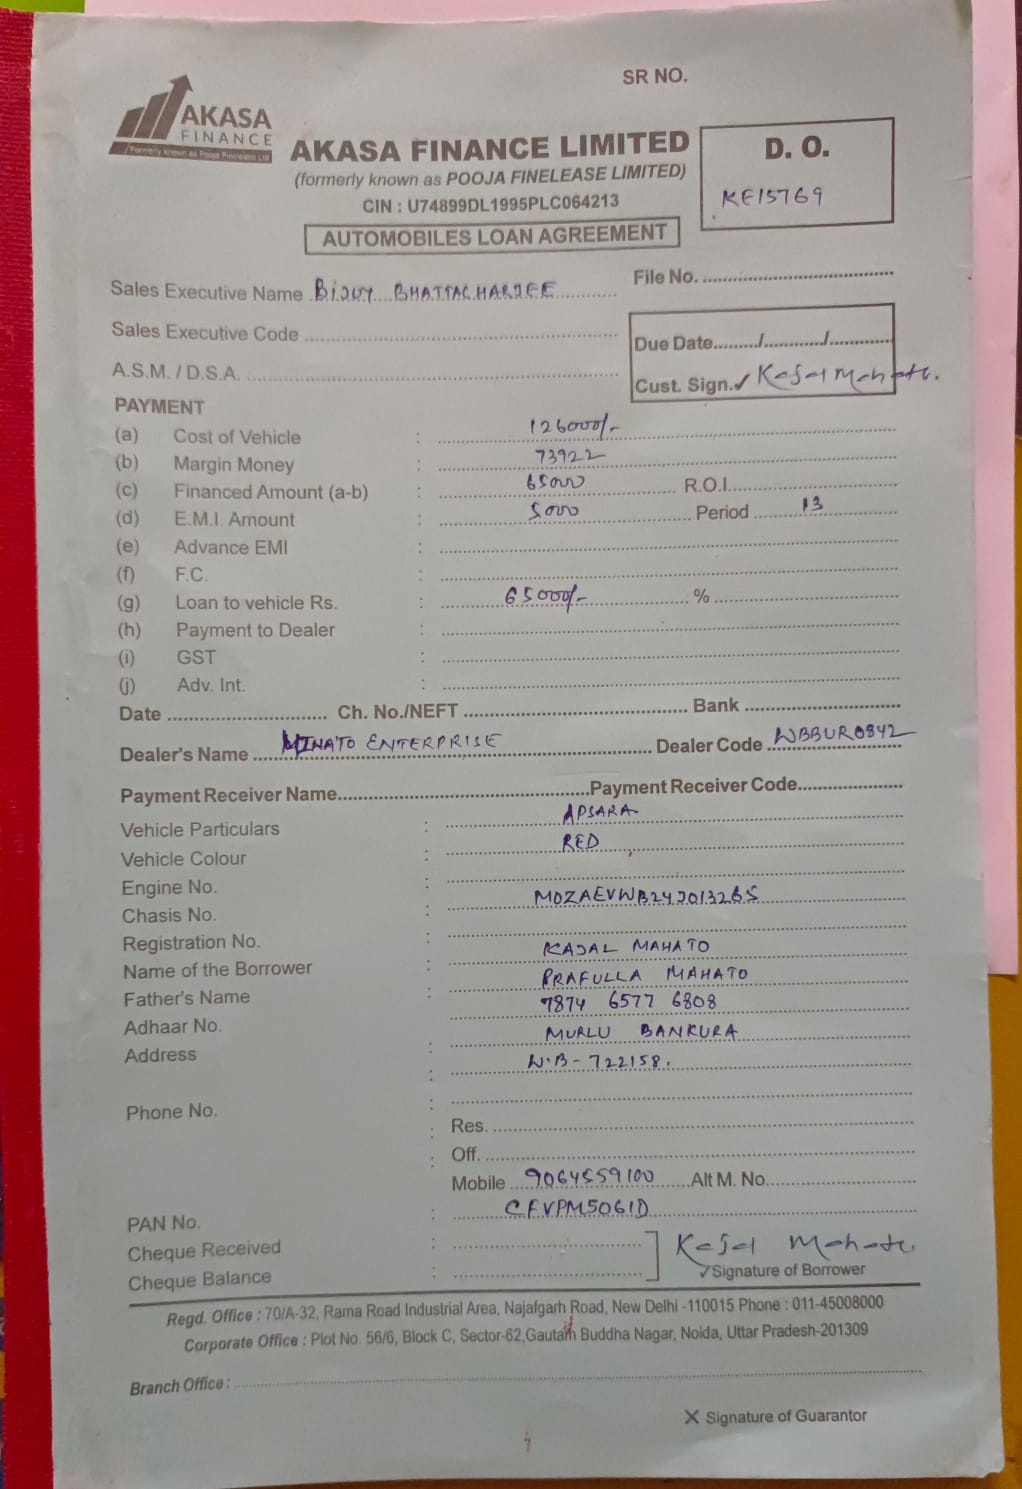 SR NO.
AKASA
FINANCE
Formerly known as Pooja Finelease Ltd
AKASA FINANCE LIMITED
(formerly known as POOJA FINELEASE LIMITED)
CIN : U74899DL1995PLC064213
AUTOMOBILES LOAN AGREEMENT
D. O.
KE15769
File No.
Sales Executive Name BHATTACHARJEE
Sales Executive Code
Due Date........./............/............
A.S.M. / D.S.A.
Cust. Sign.✓ Kajal Mahato.
PAYMENT
(a) Cost of Vehicle : 126000/-
(b) Margin Money : 73922
(c) Financed Amount (a-b) : 65000 R.O.I.
(d) E.M.I. Amount : 5000 Period 13
(e) Advance EMI :
(f) F.C. :
(g) Loan to vehicle Rs. : 65000/- %
(h) Payment to Dealer :
(i) GST :
(j) Adv. Int. :
Date Ch. No./NEFT Bank
Dealer's Name MINATO ENTERPRISE Dealer Code WBBUR0842
Payment Receiver Name Payment Receiver Code
Vehicle Particulars : APSARA
Vehicle Colour : RED
Engine No. :
Chasis No. : MOZAEVWB24J013265
Registration No. :
Name of the Borrower : KAJAL MAHATO
Father's Name : PRAFULLA MAHATO
Adhaar No. 7874 6577 6808
Address : MURLU BANKURA
: W.B - 722158.
Phone No. :
: Res.
: Off.
Mobile 9064559100 Alt M. No.
PAN No. : CFVPM5061D
Cheque Received : Kajal Mahato
Cheque Balance : ✓Signature of Borrower
Regd. Office : 70/A-32, Rama Road Industrial Area, Najafgarh Road, New Delhi -110015 Phone : 011-45008000
Corporate Office : Plot No. 56/6, Block C, Sector-62,Gautam Buddha Nagar, Noida, Uttar Pradesh-201309
Branch Office :
X Signature of Guarantor